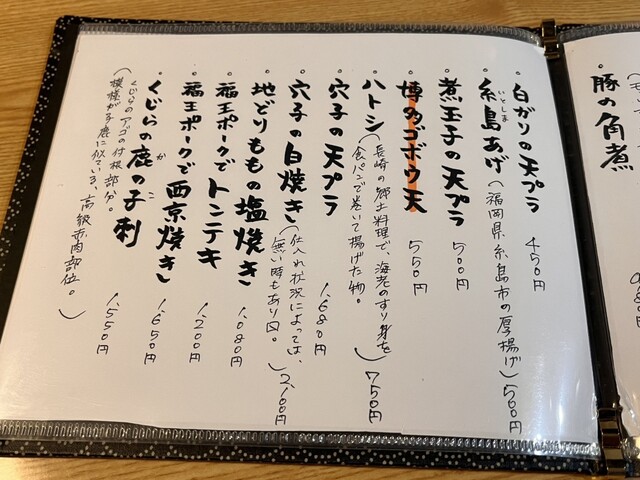 豚の角煮
・白ガリの天プラ 450円
・糸島あげ(福岡県糸島市の厚揚げ)500円
いとしま
・煮玉子の天プラ 500円
・博多ゴボウ天 550円
・ハトシ(長崎の郷土料理で、海老のすり身を
食パンで巻いて揚げた物。)750円
・穴子の天プラ 1,680円
・穴子の白焼き(仕入れ状況によっては、
無い時もあり〼。)2,100円
・地どりももの塩焼き 1,080円
・福王ポークでトンテキ 1,200円
・福王ポークで西京焼き 1,650円
・くじらの鹿の子刺 1,550円
か こ
(くじらのアゴの付根部分。
模様が子鹿に似ている、高級赤肉部位。)